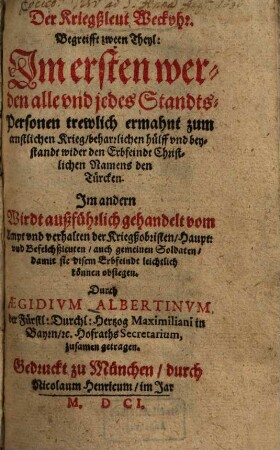 Der Kriegßleut Weckvhr.
Begreifft zween Theyl:
Im ersten wer-
den alle vnd jedes Standts-
Personen trewlich ermahnt zum
ernstlichen Krieg/ beharrlichen hülff vnd bey-
stande wider den Erbfeindt Christ-
lichen Namens den
Türcken.
Im andern
Wirdt außführlich gehandelt vom
Ampt vnd verhalten der Kriegßobristen/ Haupt:
vnd Befelchßleuten/ auch gemeinen Soldaten/
damit sie disem Erbfeindt leichtlich
können obsiegen.
Durch
ÆGIDIVM ALBERTINVM,
der Fürstl: Durchl: Hertzog Maximiliani in
Bayrn/ ꝛc. Hofraths Secretarium,
zusamen getragen.
Gedruckt zu München/ durch
Nicolaum Henricum/ im Jar
M. D CI.